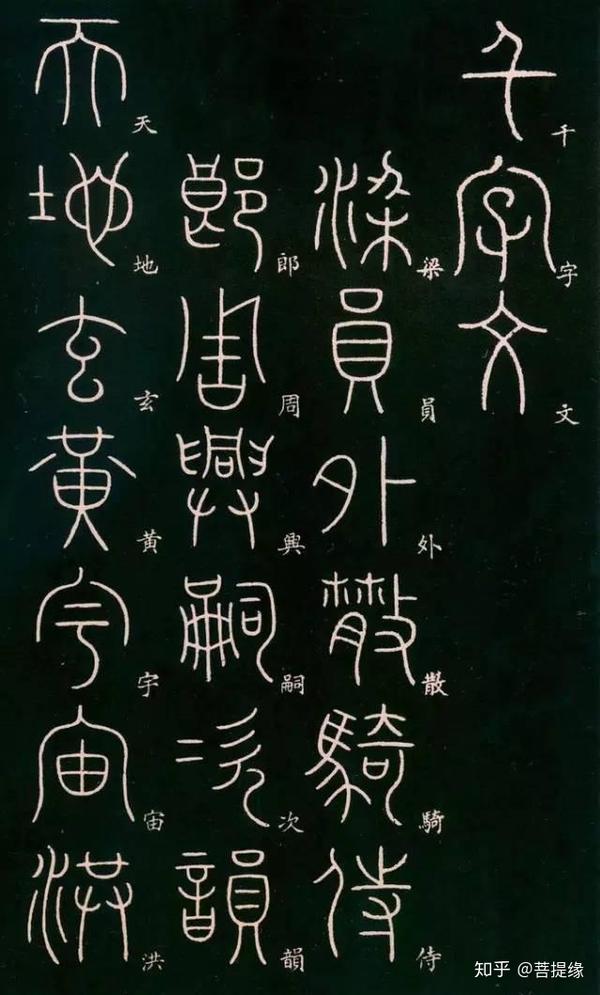 千字文
梁員外散騎侍
郎周興嗣次韻
天地玄黃宇宙洪
知乎 @菩提缘